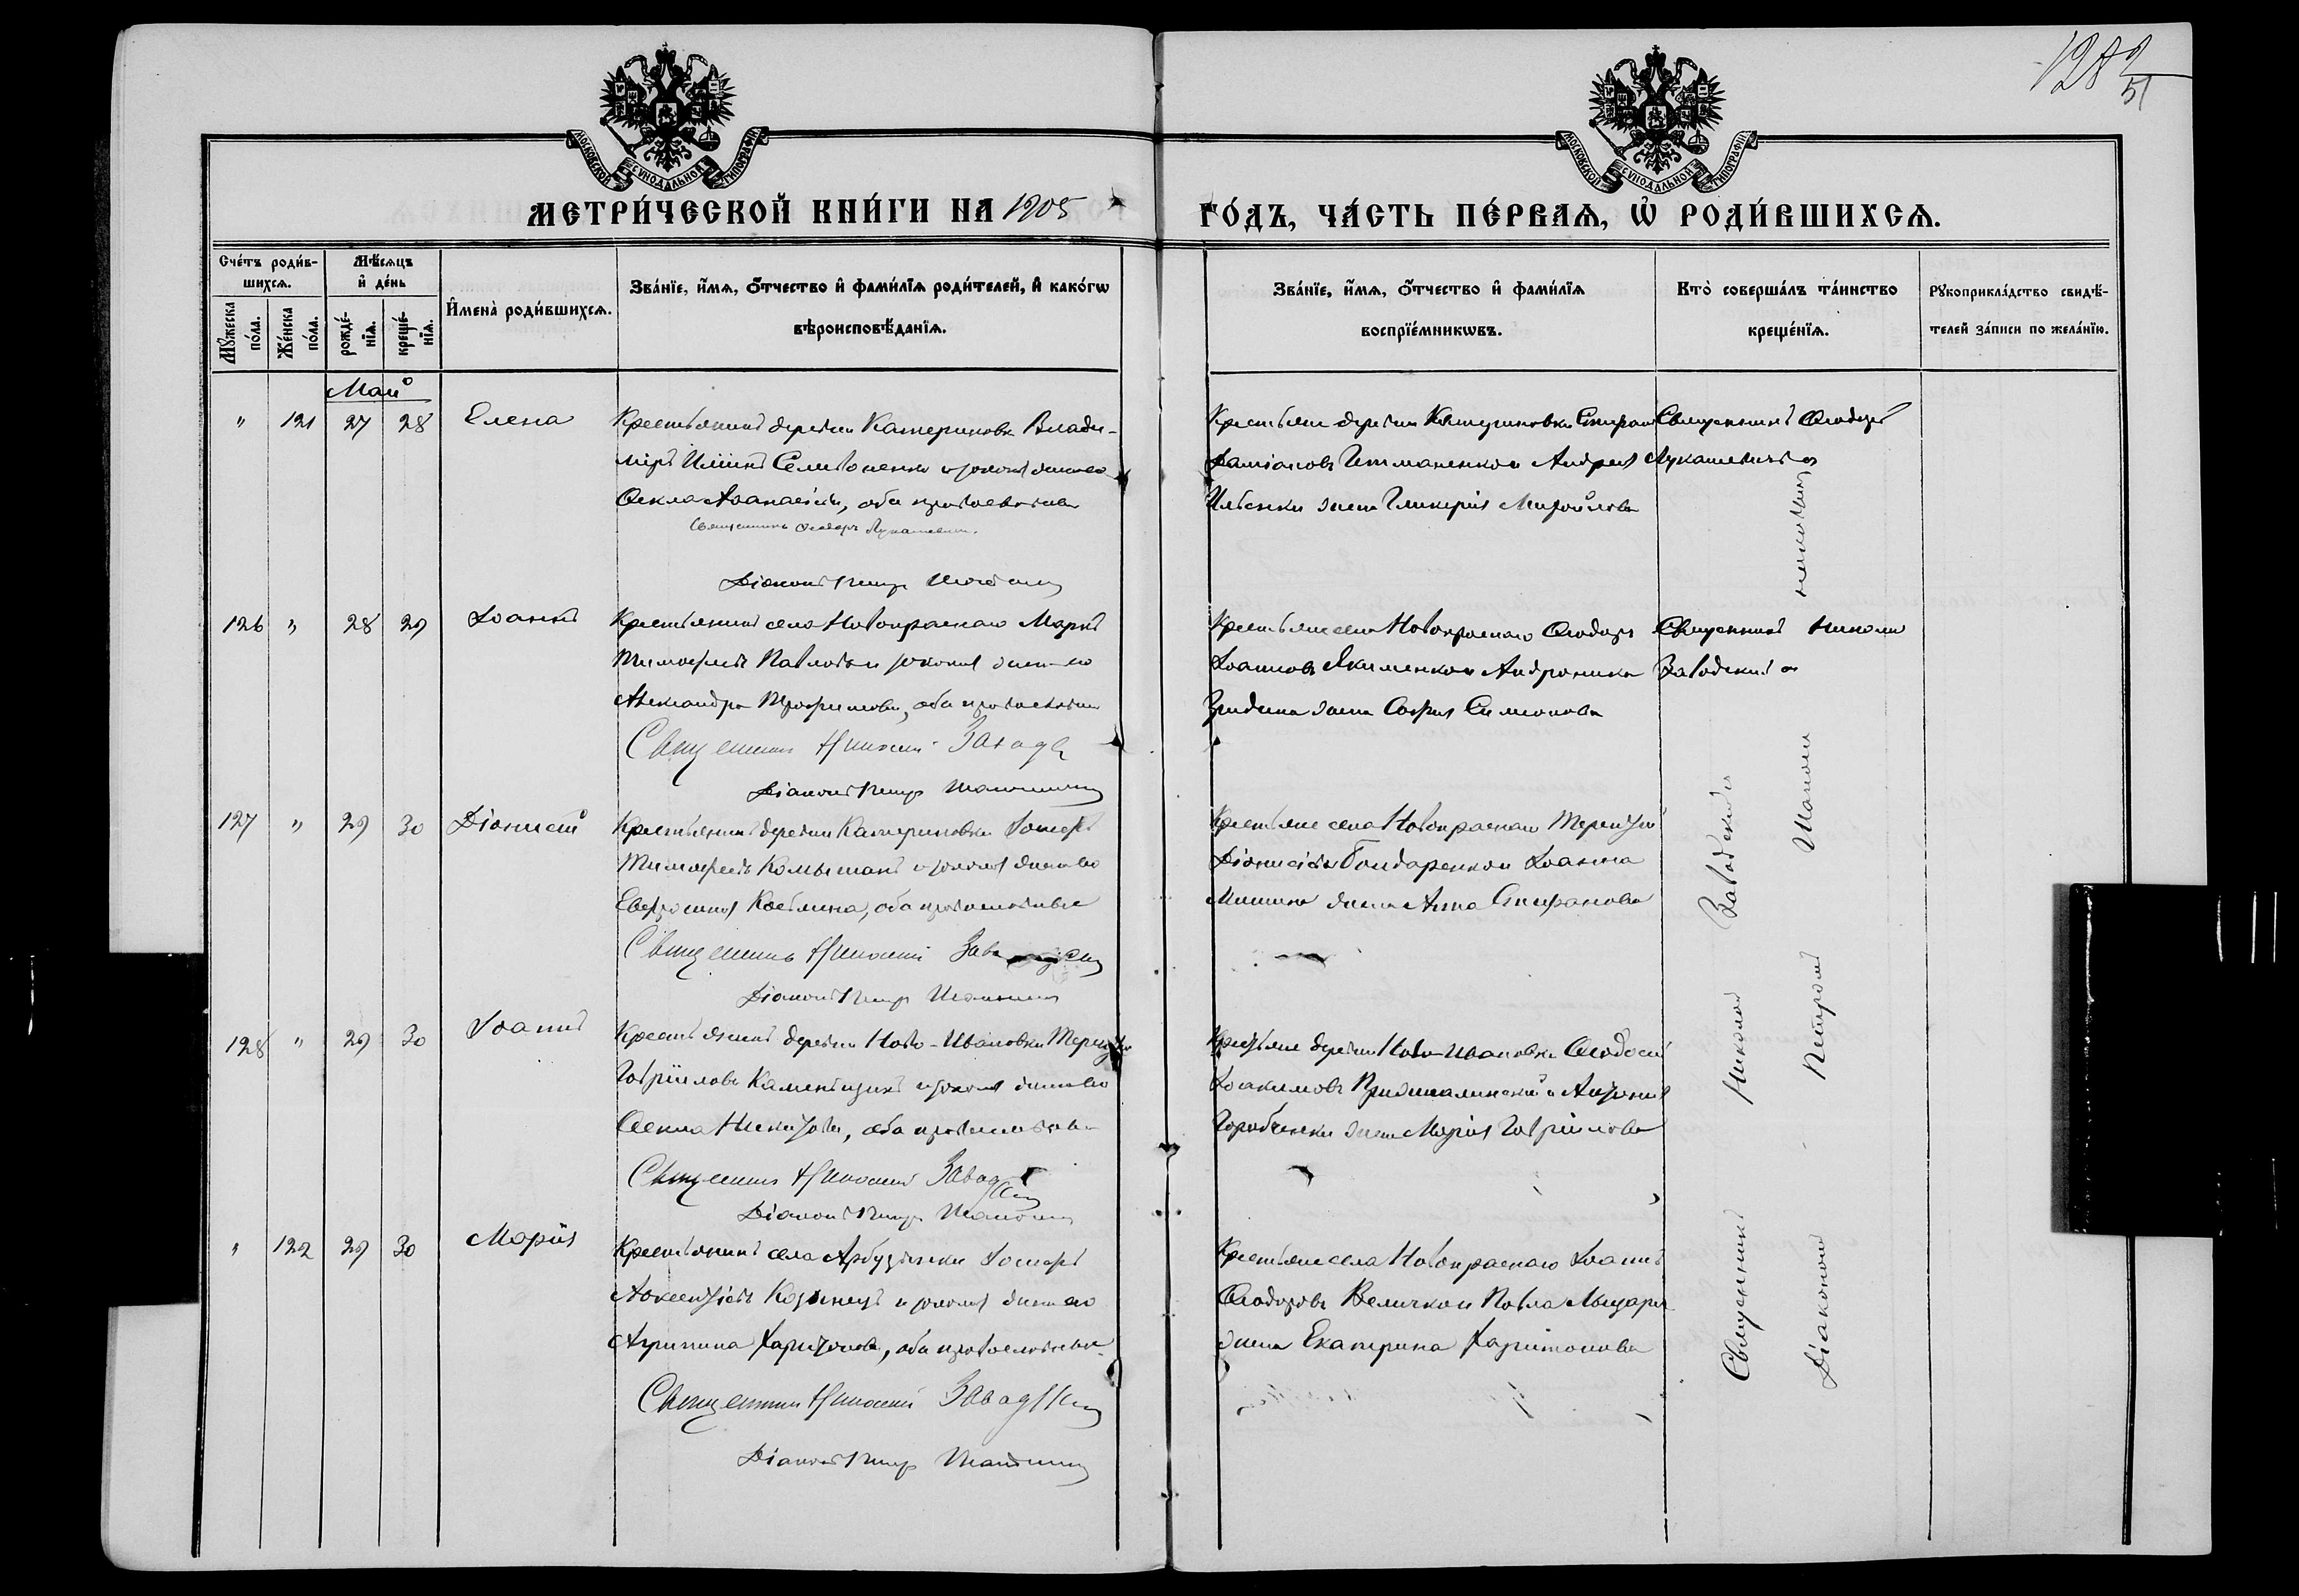 128 9/51
МОСКОВСКОЙ СѴНОДАЛЬНОЙ ТИПОГРАФІИ
МОСКОВСКОЙ СѴНОДАЛЬНОЙ ТИПОГРАФІИ
МЕТРИ́ЧЕСКОЙ КНИ́ГИ НА 1905
ГО́ДЪ, ЧА́СТЬ ПЕ́РВАѦ, Ѡ҆ РОДИ́ВШИХСѦ.
Сче́тъ роди́в-
шихсѧ.
Мꙋ́жеска по́ла.
Же́нска по́ла.
Мѣ́сѧцъ
и҆ де́нь
рожде́-
нїѧ.
креще́-
нїѧ.
И҆мена̀ роди́вшихсѧ.
Зва́нїе, и҆́мѧ, ѻ҆́тчество и҆ фами́лїѧ роди́телей, и҆ како́гѡ
вѣроисповѣ́данїѧ.
Зва́нїе, и҆́мѧ, ѻ҆́тчество и҆ фами́лїѧ
воспрїе́мникѡвъ.
Кто̀ соверша́лъ та́инство
креще́нїѧ.
Рꙋкоприкла́дство свидѣ́-
телей за́писи по жела́нїю.
Май
" 121 27 28 Елена
Крестьянинъ деревни Катериновки Влади-
міръ Иліинъ Селивоненко и законная жена его
Ѳекла Аѳанасіева, оба православные
Священникъ Ѳеодоръ Лукашевичъ.
Діаконъ Петръ
Крестьяне деревни Катериновки Стефанъ
Даміановъ Гетманенко и Андрея
Ильенки жена Гликерія Михайлова
Священникъ Ѳеодоръ
Лукашевичъ
126 " 28 29 Іоаннъ
Крестьянинъ села Новокраснаго Маркъ
Тимоѳеевъ Павловъ и законная жена его
Александра Трофимова, оба православные
Священникъ Николай Завадскій
Діаконъ Петръ
Крестьяне села Новокраснаго Ѳеодоръ
Іоанновъ Якименко и Андроника
жена Софія Симеонова
Священникъ Николай
Заводскій
127 " 29 30 Діонисій
Крестьянинъ деревни Катериновки Іосифъ
Тимоѳеевъ Комышанъ и законная жена его
Евфросинія, оба православные
Священникъ Николай Завадскій
Діаконъ Петръ
Крестьяне села Новокраснаго Терентій
Діонисіевъ Бондаренко и Іоанна
жена Анна Стефанова
128 " 29 30 Іоаннъ
Крестьянинъ деревни Ново-Ивановки Терентій
Гавріиловъ Каменьщикъ и законная жена его
Ѳекла, оба православные
Священникъ Николай Завадскій
Діаконъ Петръ
Крестьяне деревни Ново-Ивановки Ѳеодосій
Іоакимовъ и Антонія
жена Марія Гавріилова
" 122 29 30 Марія
Крестьянинъ села Арбузинки Іосифъ
Авксентіевъ и законная жена его
Агрипина Харитонова, оба православные
Священникъ Николай Завадскій
Діаконъ Петръ
Крестьяне села Новокраснаго Іоаннъ
Ѳеодоровъ Величко и Павла
жена Екатерина Харитонова
Священникъ Николай Заводскій
Діаконъ Петръ